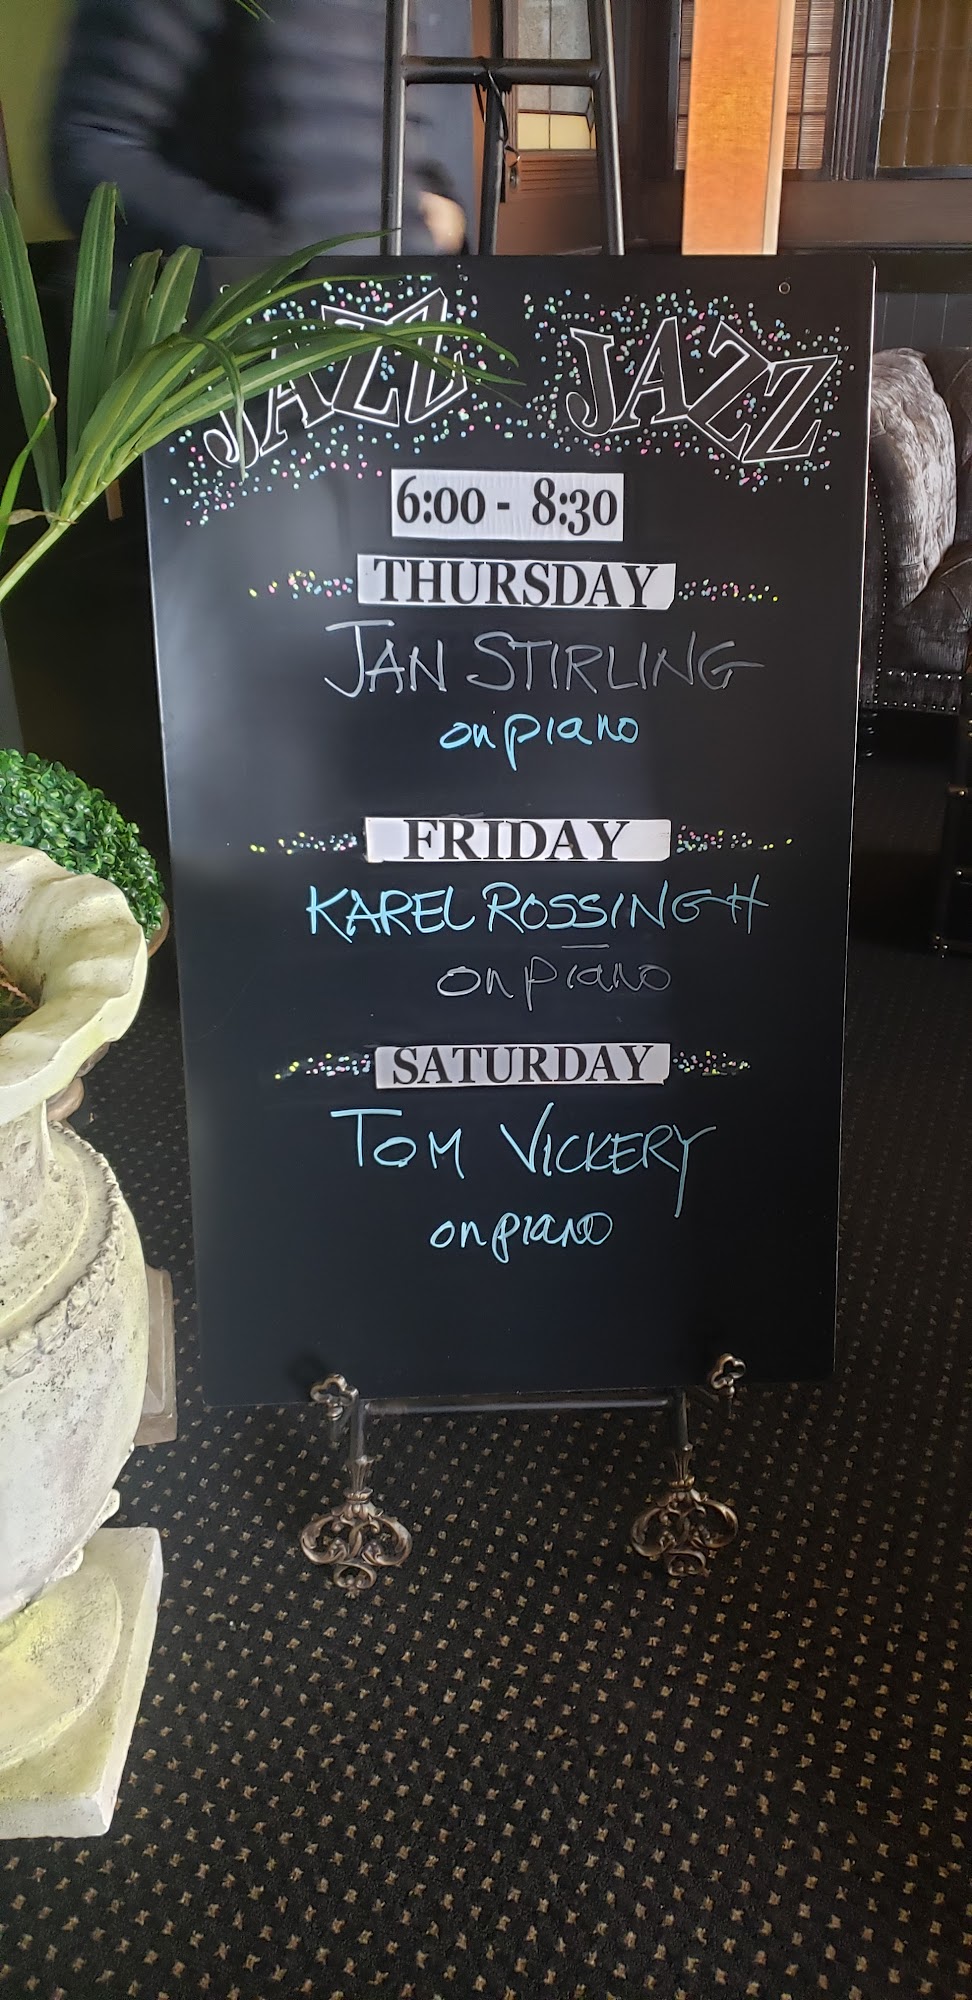 JAZZ JAZZ
6:00 - 8:30
THURSDAY
JAN STIRLING
on piano
FRIDAY
KAREL ROSSINGH
on piano
SATURDAY
TOM VICKERY
on piano